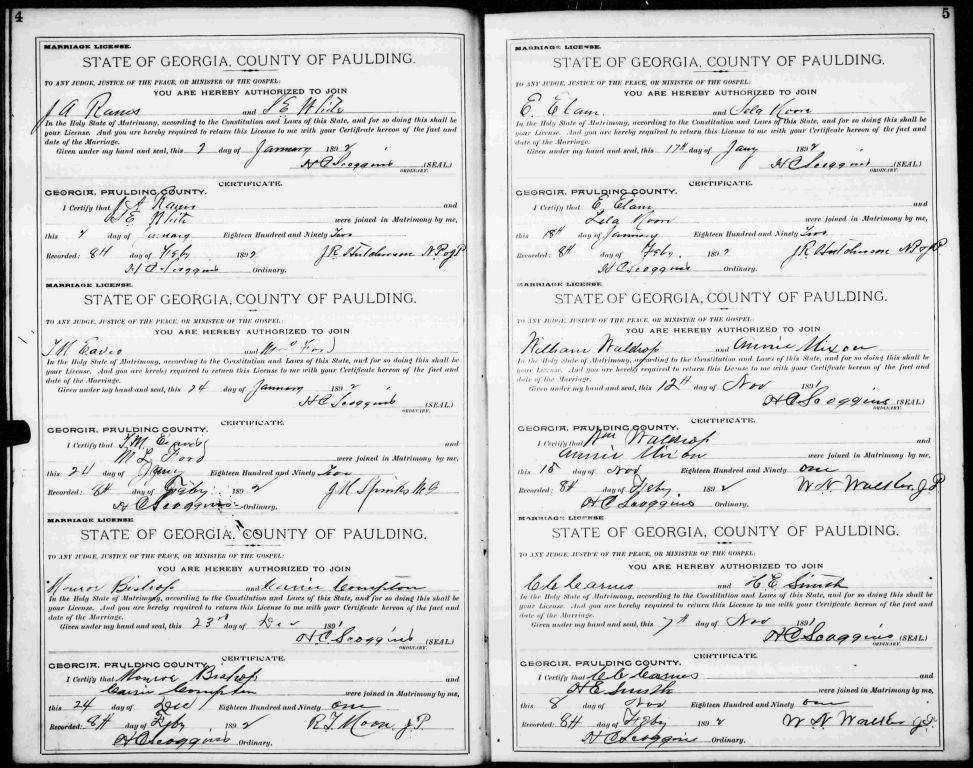 4
MARRIAGE LICENSE.
STATE OF GEORGIA, COUNTY OF PAULDING.
TO ANY JUDGE, JUSTICE OF THE PEACE, OR MINISTER OF THE GOSPEL:
YOU ARE HEREBY AUTHORIZED TO JOIN
J A and E White
In the Holy State of Matrimony, according to the Constitution and Laws of this State, and for so doing this shall be
your License. And you are hereby required to return this License to me with your Certificate hereon of the fact and
date of the Marriage.
Given under my hand and seal, this 2 day of January 1892
H C Scoggins (SEAL)
ORDINARY.
CERTIFICATE.
GEORGIA, PAULDING COUNTY.
I Certify that J A and
E White were joined in Matrimony by me,
this 2 day of January Eighteen Hundred and Ninety Two
Recorded: 8th day of Feby 1892 J.R. Hutcherson N.P. & J.P.
H C Scoggins Ordinary.
MARRIAGE LICENSE.
STATE OF GEORGIA, COUNTY OF PAULDING.
TO ANY JUDGE, JUSTICE OF THE PEACE, OR MINISTER OF THE GOSPEL:
YOU ARE HEREBY AUTHORIZED TO JOIN
M Eaves and Ford
In the Holy State of Matrimony, according to the Constitution and Laws of this State, and for so doing this shall be
your License. And you are hereby required to return this License to me with your Certificate hereon of the fact and
date of the Marriage.
Given under my hand and seal, this 24 day of January 1892
H C Scoggins (SEAL.)
ORDINARY.
CERTIFICATE.
GEORGIA, PAULDING COUNTY.
I Certify that M. Eaves and
M L Ford were joined in Matrimony by me,
this 24 day of Jany Eighteen Hundred and Ninety Two
Recorded: 8th day of Feby 1892 M.G.
H C Scoggins Ordinary.
MARRIAGE LICENSE
STATE OF GEORGIA, COUNTY OF PAULDING.
TO ANY JUDGE, JUSTICE OF THE PEACE, OR MINISTER OF THE GOSPEL:
YOU ARE HEREBY AUTHORIZED TO JOIN
Monroe Bishop and Carrie Compton
In the Holy State of Matrimony, according to the Constitution and Laws of this State, and for so doing this shall be
your License. And you are hereby required to return this License to me with your Certificate hereon of the fact and
date of the Marriage.
Given under my hand and seal, this 23rd day of Dec 1891
H C Scoggins (SEAL)
ORDINARY.
CERTIFICATE.
GEORGIA, PAULDING COUNTY.
I Certify that Monroe Bishop and
Carrie Compton were joined in Matrimony by me,
this 24 day of Dec Eighteen Hundred and Ninety one
Recorded: 8th day of Feby 1892 R.T. Moon J.P.
H C Scoggins Ordinary.
5
MARRIAGE LICENSE.
STATE OF GEORGIA, COUNTY OF PAULDING.
TO ANY JUDGE, JUSTICE OF THE PEACE, OR MINISTER OF THE GOSPEL:
YOU ARE HEREBY AUTHORIZED TO JOIN
E. Elam and Lela Moon
In the Holy State of Matrimony, according to the Constitution and Laws of this State, and for so doing this shall be
your License. And you are hereby required to return this License to me with your Certificate hereon of the fact and
date of the Marriage.
Given under my hand and seal, this 17th day of Jany 1892
H C Scoggins (SEAL)
ORDINARY.
CERTIFICATE.
GEORGIA, PAULDING COUNTY.
I Certify that E Elam and
Lela Moon were joined in Matrimony by me,
this 18th day of January Eighteen Hundred and Ninety Two
Recorded: 8th day of Feby. 1892 J.R. Hutcherson N.P. & J.P.
H C Scoggins Ordinary.
MARRIAGE LICENSE.
STATE OF GEORGIA, COUNTY OF PAULDING.
TO ANY JUDGE, JUSTICE OF THE PEACE, OR MINISTER OF THE GOSPEL:
YOU ARE HEREBY AUTHORIZED TO JOIN
William Waldrop and Annie Mixon
In the Holy State of Matrimony, according to the Constitution and Laws of this State, and for so doing this shall be
your License. And you are hereby required to return this License to me with your Certificate hereon of the fact and
date of the Marriage.
Given under my hand and seal, this 12th day of Nov 1891
H C Scoggins (SEAL)
ORDINARY.
CERTIFICATE.
GEORGIA, PAULDING COUNTY.
I Certify that Wm Waldrop and
Annie Mixon were joined in Matrimony by me,
this 15 day of Nov Eighteen Hundred and Ninety one
Recorded: 8th day of Feby 1892 W. N. Walker J.P.
H C Scoggins Ordinary.
MARRIAGE LICENSE
STATE OF GEORGIA, COUNTY OF PAULDING.
TO ANY JUDGE, JUSTICE OF THE PEACE, OR MINISTER OF THE GOSPEL:
YOU ARE HEREBY AUTHORIZED TO JOIN
C C Carnes and H E Smith
In the Holy State of Matrimony, according to the Constitution and Laws of this State, and for so doing this shall be
your License. And you are hereby required to return this License to me with your Certificate hereon of the fact and
date of the Marriage.
Given under my hand and seal, this 7th day of Nov 1891
H C Scoggins (SEAL)
ORDINARY.
CERTIFICATE.
GEORGIA, PAULDING COUNTY.
I Certify that C C Carnes and
H E Smith were joined in Matrimony by me,
this 8 day of Nov Eighteen Hundred and Ninety one
Recorded: 8th day of Feby 1892 W. N. Walker J.P.
H C Scoggins Ordinary.